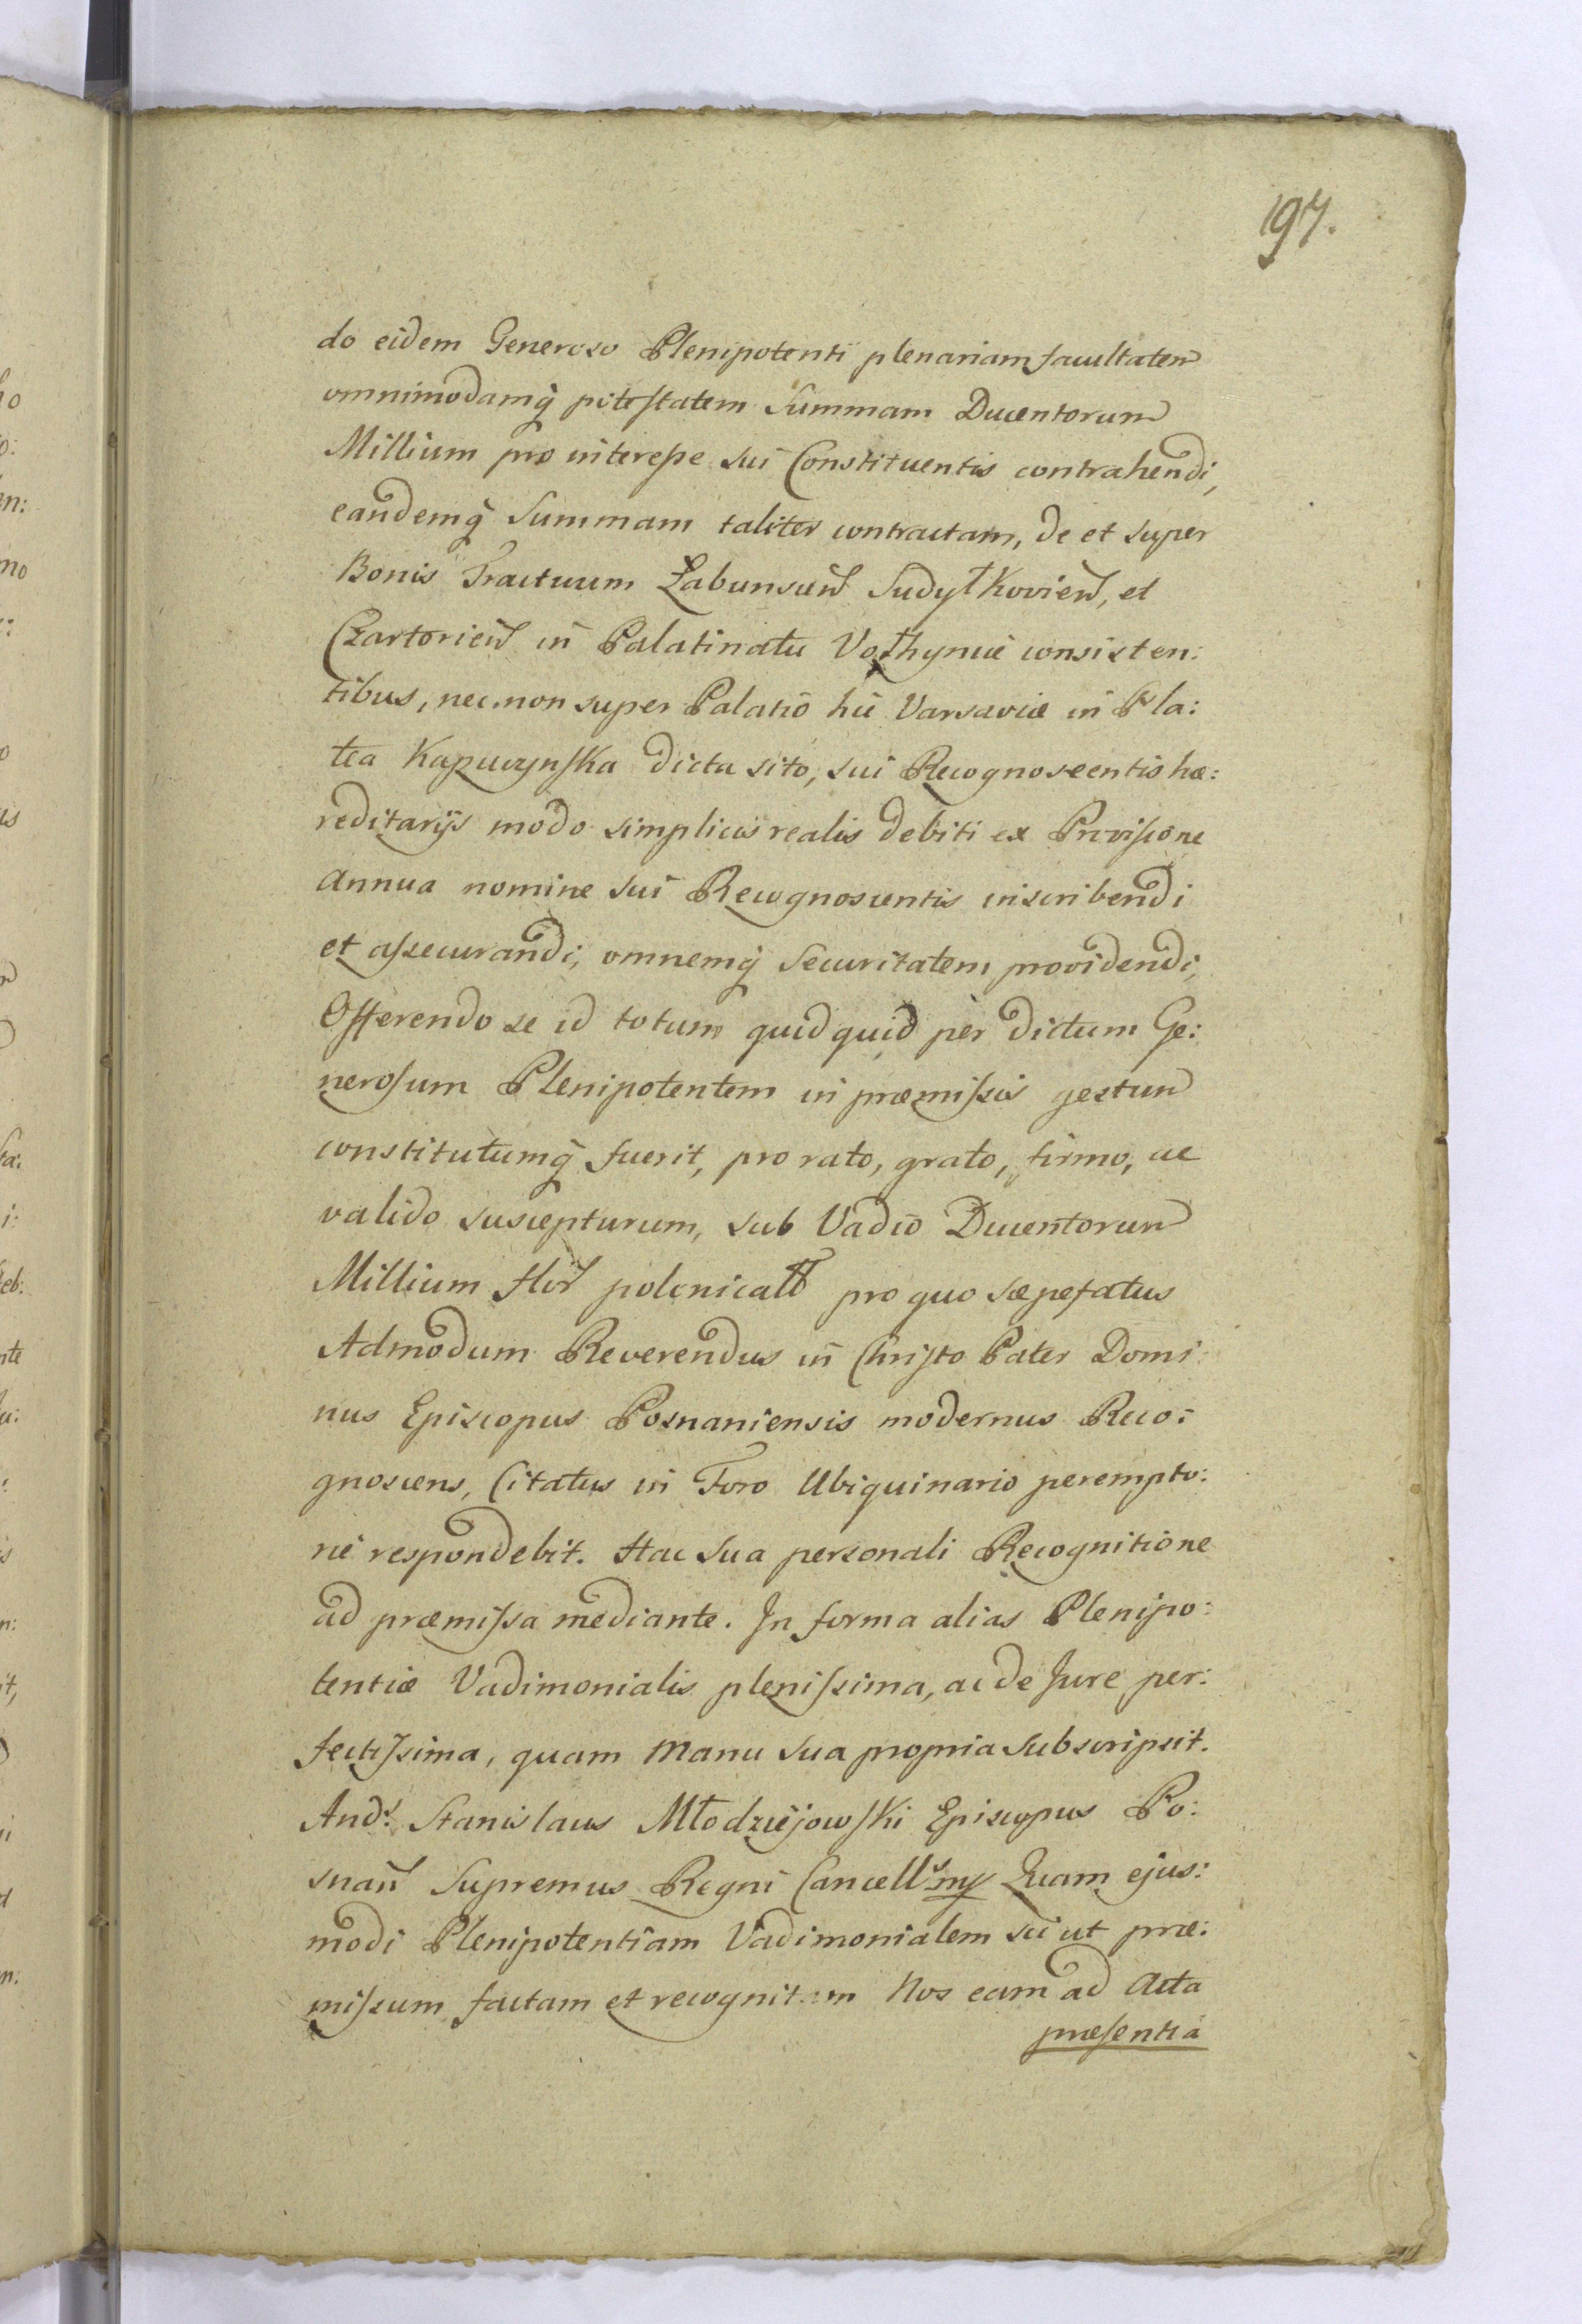 197.
do eidem Generoso Plenipotenti plenariam facultatem
omnimodamq̃ potestatem Summam Ducentorum
Millium pro interesse sui Constituentis contrahendi,
eandemq̃ Summam taliter contractam, de et super
Bonis Tractuum Łabunscen̄ Sudyłkovien̄, et
Czartorien̄ in Palatinatu Vołhyniæ consisten:
tibus, nec non super Palatio hic Varsaviæ in Pla:
tea Kapucynska dicta sito, sui Recognoscentis hæ:
reditarijs modo simplicis realis debiti ex Provisione
annua nomine sui Recognoscentis inscribendi
et assecurandi, omnemq̃ Securitatem providendi,
Offerendo se id totum quidquid per dictum Ge:
nerosum Plenipotentem in præmissis gestum
constitutumq̃ fuerit, pro rato, grato, firmo, ac
valido suscepturum, sub Vadio Ducentorum
Millium flor̄ polonicall̄ pro quo sæpefatus
Admodum Reverendus in Christo Pater Domi
nus Episcopus Posnaniensis modernus Reco:
gnoscens, Citatus in Foro Ubiquinario perempto:
rie respondebit. Hac sua personali Recognitione
ad præmissa mediante. In forma alias Plenipo:
tentiæ Vadimonialis plenissima, ac de Jure per:
fectissima, quam manu sua propria subscripsit.
And: Stanislaus Młodziejowski Episcopus Po:
snan̄ Supremus Regni Cancell: mp Quam ejus:
modi Plenipotentiam Vadimonialem sic ut præ:
missum factam et recognitam Nos eam ad Acta
præsentia